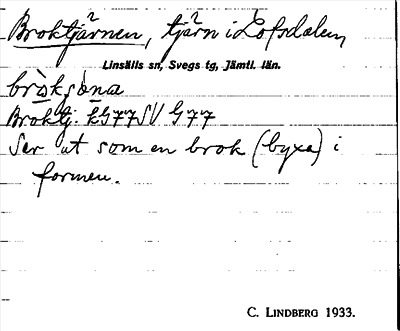 Broktjärnen, tjärn i Lofsdalen,
Linsälls sn, Svegs tg, Jämtl. län.
Broktj. LG77SV G77
Ser ut som en brok (byxa) i
formen.
C. LINDBERG 1933.